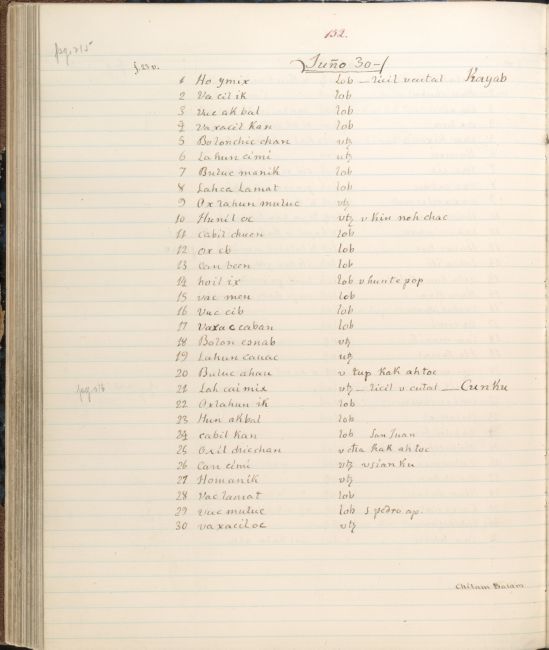 132.
pg. 215
f. 23 v.
Juño 30-
1 Ho ymix lob _ licil v cutal Kayab
2 Va cil ik lob
3 Vuc ak bal lob
4 Vaxacil Kan lob
5 Bolonchic chan vtz
6 Lahun cimi utz
7 Buluc manik lob
8 Lahca Lamat lob
9 Oxlahun muluc vtz
10 Hunil oc vtz v kin noh chac
11 cabil chuen lob
12 ox eb lob
13 Can been lob
14 hoil ix lob v hunte pop
15 vac men lob
16 Vuc cib lob
17 Vaxac caban lob
18 Bolon esnab vtz
19 Lahun cauac utz
20 Buluc ahau v tup kak ah toc
21 Lah cai mix vtz _ licil v cutal _ Cumku
22 Oxlahun ik lob
23 Hun akbal lob
24 cabil Kan lob San Juan
25 Oxil chicchan v cha kak ah toc
26 Can cimi vtz v sian ku
27 Homanik vtz
28 Vac lamat lob
29 vuc muluc lob S pedro ap.
30 vaxacil oc vtz
Chilam Balam